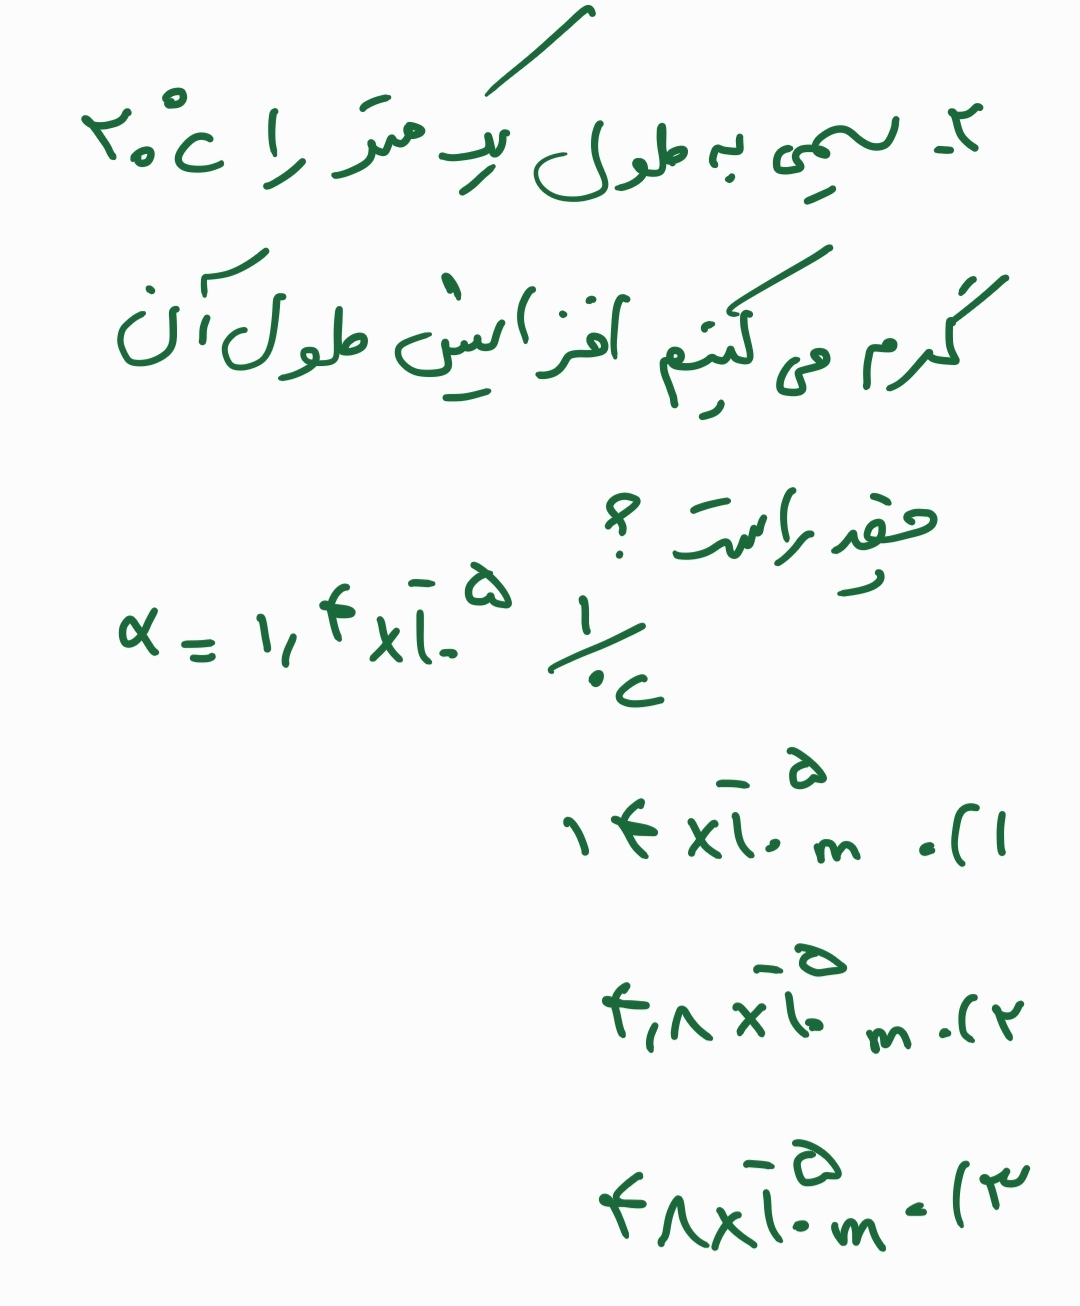 ۲. سیمی به طول یک متر را ۲۰°C
گرم می کنیم افزایش طول آن
چقدر است ؟
α = ۱,۴×۱۰⁻⁵ ۱/°C
۱). ۱۴×۱۰⁻⁵ m
۲). ۴,۸×۱۰⁻⁵ m
۳). ۴۸×۱۰⁻⁵ m